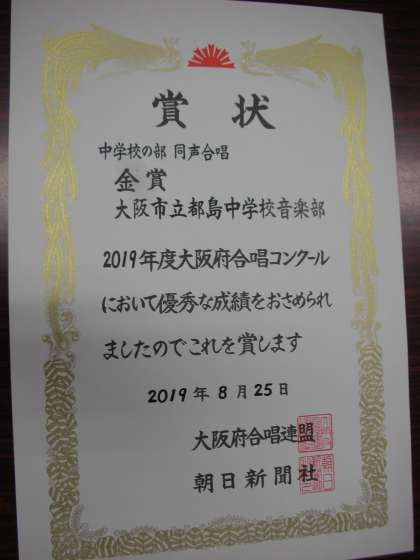 賞状
中学校の部 同声合唱
金賞
大阪市立都島中学校音楽部
2019年度大阪府合唱コンクール
において優秀な成績をおさめられ
ましたのでこれを賞します
2019年8月25日
大阪府合唱連盟
朝日新聞社